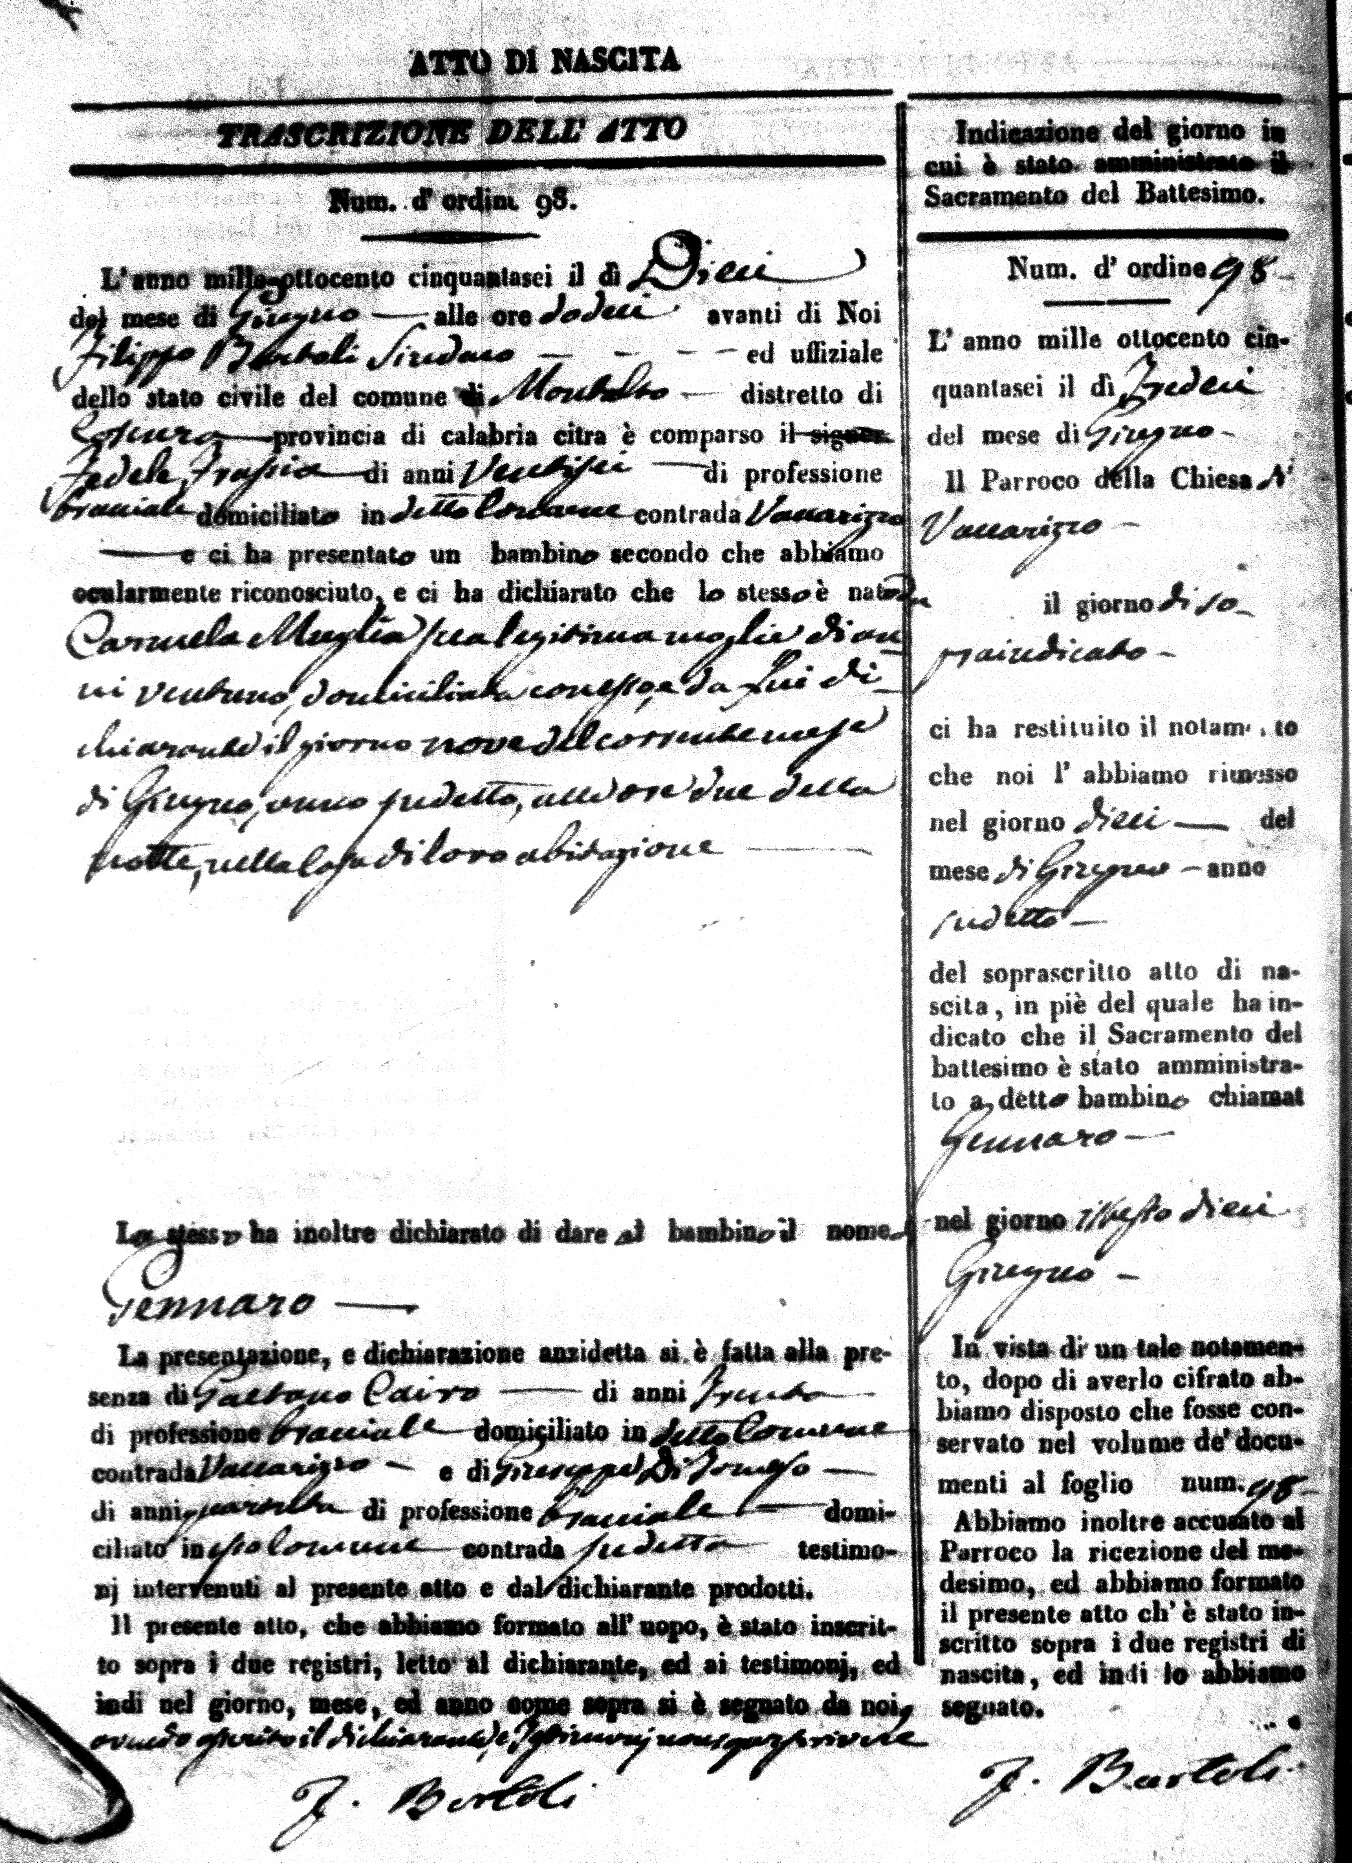 ATTO DI NASCITA
TRASCRIZIONE DELL' ATTO
Num. d' ordine 98.
L' anno mille ottocento cinquantasei il dì Dieci
del mese di Giugno — alle ore dodeci avanti di Noi
Filippo Bartoli Sindaco — — — ed uffiziale
dello stato civile del comune di Montalto — distretto di
Cosenza — provincia di calabria citra è comparso il signor
Fedele Frassia — di anni Ventisei — di professione
bracciale domiciliato in detto Comune contrada Vaccarizzo
— e ci ha presentato un bambino secondo che abbiamo
ocularmente riconosciuto, e ci ha dichiarato che lo stesso è nato da
Carmela Muglia sua legitima moglie di an
ni ventuno, domiciliata con esso, e da Lui di
chiarante il giorno nove del corrente mese
di Giugno, anno sudetto, alle ore due della
notte, nella Casa di loro abitazione —
Lo stesso ha inoltre dichiarato di dare al bambino il nome di
Gennaro —
La presentazione, e dichiarazione anzidetta si è fatta alla pre-
senza di Gaetano Cairo — di anni Trenta
di professione bracciale domiciliato in detto Comune
contrada Vaccarizzo — e di Giuseppe Di Tomaso —
di anni quaranta di professione bracciale — domi-
ciliato in esso Comune contrada sudetta testimo-
nj intervenuti al presente atto e dal dichiarante prodotti.
Il presente atto, che abbiamo formato all' uopo, è stato inscrit-
to sopra i due registri, letto al dichiarante, ed ai testimonj, ed
indi nel giorno, mese, ed anno come sopra si è segnato da noi,
avendo asserito il dichiarante, e Testimonj non saper scrivere
F. Bartoli
Indicazione del giorno in
cui è stato amministrato il
Sacramento del Battesimo.
Num. d' ordine 98
L' anno mille ottocento cin-
quantasei il dì Tredeci
del mese di Giugno —
Il Parroco della Chiesa di
Vaccarizzo —
il giorno di so-
praindicato —
ci ha restituito il notamento
che noi l' abbiamo rimesso
nel giorno dieci — del
mese di Giugno — anno
sudetto —
del soprascritto atto di na-
scita, in piè del quale ha in-
dicato che il Sacramento del
battesimo è stato amministra-
to a detto bambino chiamat
Gennaro —
nel giorno istesso dieci
Giugno —
In vista di un tale notamen-
to, dopo di averlo cifrato ab-
biamo disposto che fosse con-
servato nel volume de' docu-
menti al foglio num. 98
Abbiamo inoltre accusato al
Parroco la ricezione del me-
desimo, ed abbiamo formato
il presente atto ch' è stato in-
scritto sopra i due registri di
nascita, ed indi lo abbiamo
segnato.
F. Bartoli